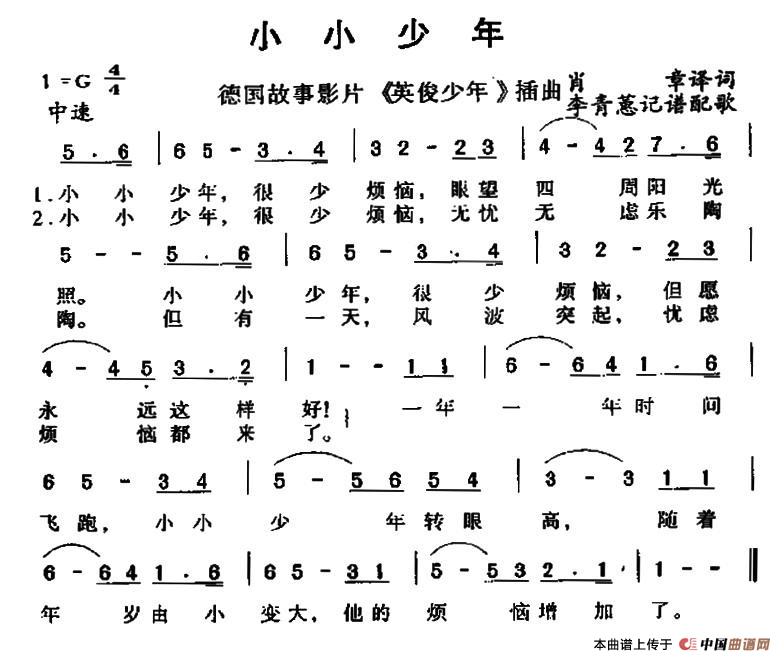 小小少年
1=G 4/4
中速
德国故事影片《英俊少年》插曲
肖 章译词
李青葱记谱配歌
5·6 | 6 5 - 3·4 | 3 2 - 2 3 | 4 - 4 2 7·6 |
1.小 小 少年，很 少 烦恼，眼望 四 周阳 光
2.小 小 少年，很 少 烦恼，无忧 无 虑乐 陶
5 - - 5·6 | 6 5 - 3·4 | 3 2 - 2 3 |
照。 小 小 少年，很 少 烦恼，但愿
陶。 但 有 一天，风 波 突起，忧虑
4 - 4 5 3·2 | 1 - - 1 1 | 6 - 6 4 1·6 |
永 远这 样 好！ 一年 一 年时 间
烦 恼都 来 了。
6 5 - 3 4 | 5 - 5 6 5 4 | 3 - 3 1 1 |
飞跑，小小 少 年转眼 高，随着
6 - 6 4 1·6 | 6 5 - 3 1 | 5 - 5 3 2·1 | 1 - - ‖
年 岁由 小 变大，他的 烦 恼增 加 了。
本曲谱上传于 中国曲谱网